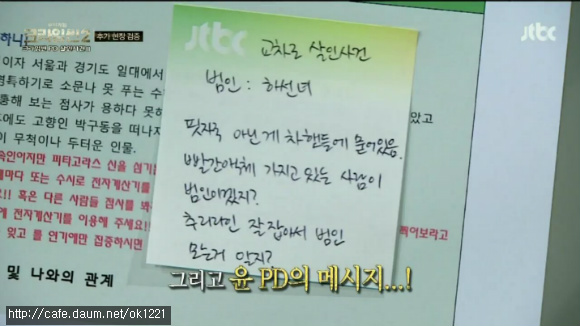 크라임씬2
추가 현장 검증
jtbc
jtbc
교차로 살인사건
범인 : 하선녀
핏자국 아닌게 차 핸들에 묻어있음.
빨간액체 가지고 있는 사람이
범인이겠지?
추리라인 잘 잡아서 범인
모는거 알지?
이자 서울과 경기도 일대에서
영특하기로 소문나 못 푸는 수
통해 보는 점사가 용하다 못하
에도 고함인 박구동을 떠나지
이 무척이나 두터운 인물.
았고
속인이지만 피타고라스 신을 섬기
때마다 또는 수시로 전자계산기를
!! 혹은 다른 사람들 점사를 봐
에 전자계산기를 이용해 주세요!!
찍어보라고
잊고 롤 연기에만 집중하시면
및 나와의 관계
그리고 윤 PD의 메시지...!
http://cafe.daum.net/ok1221